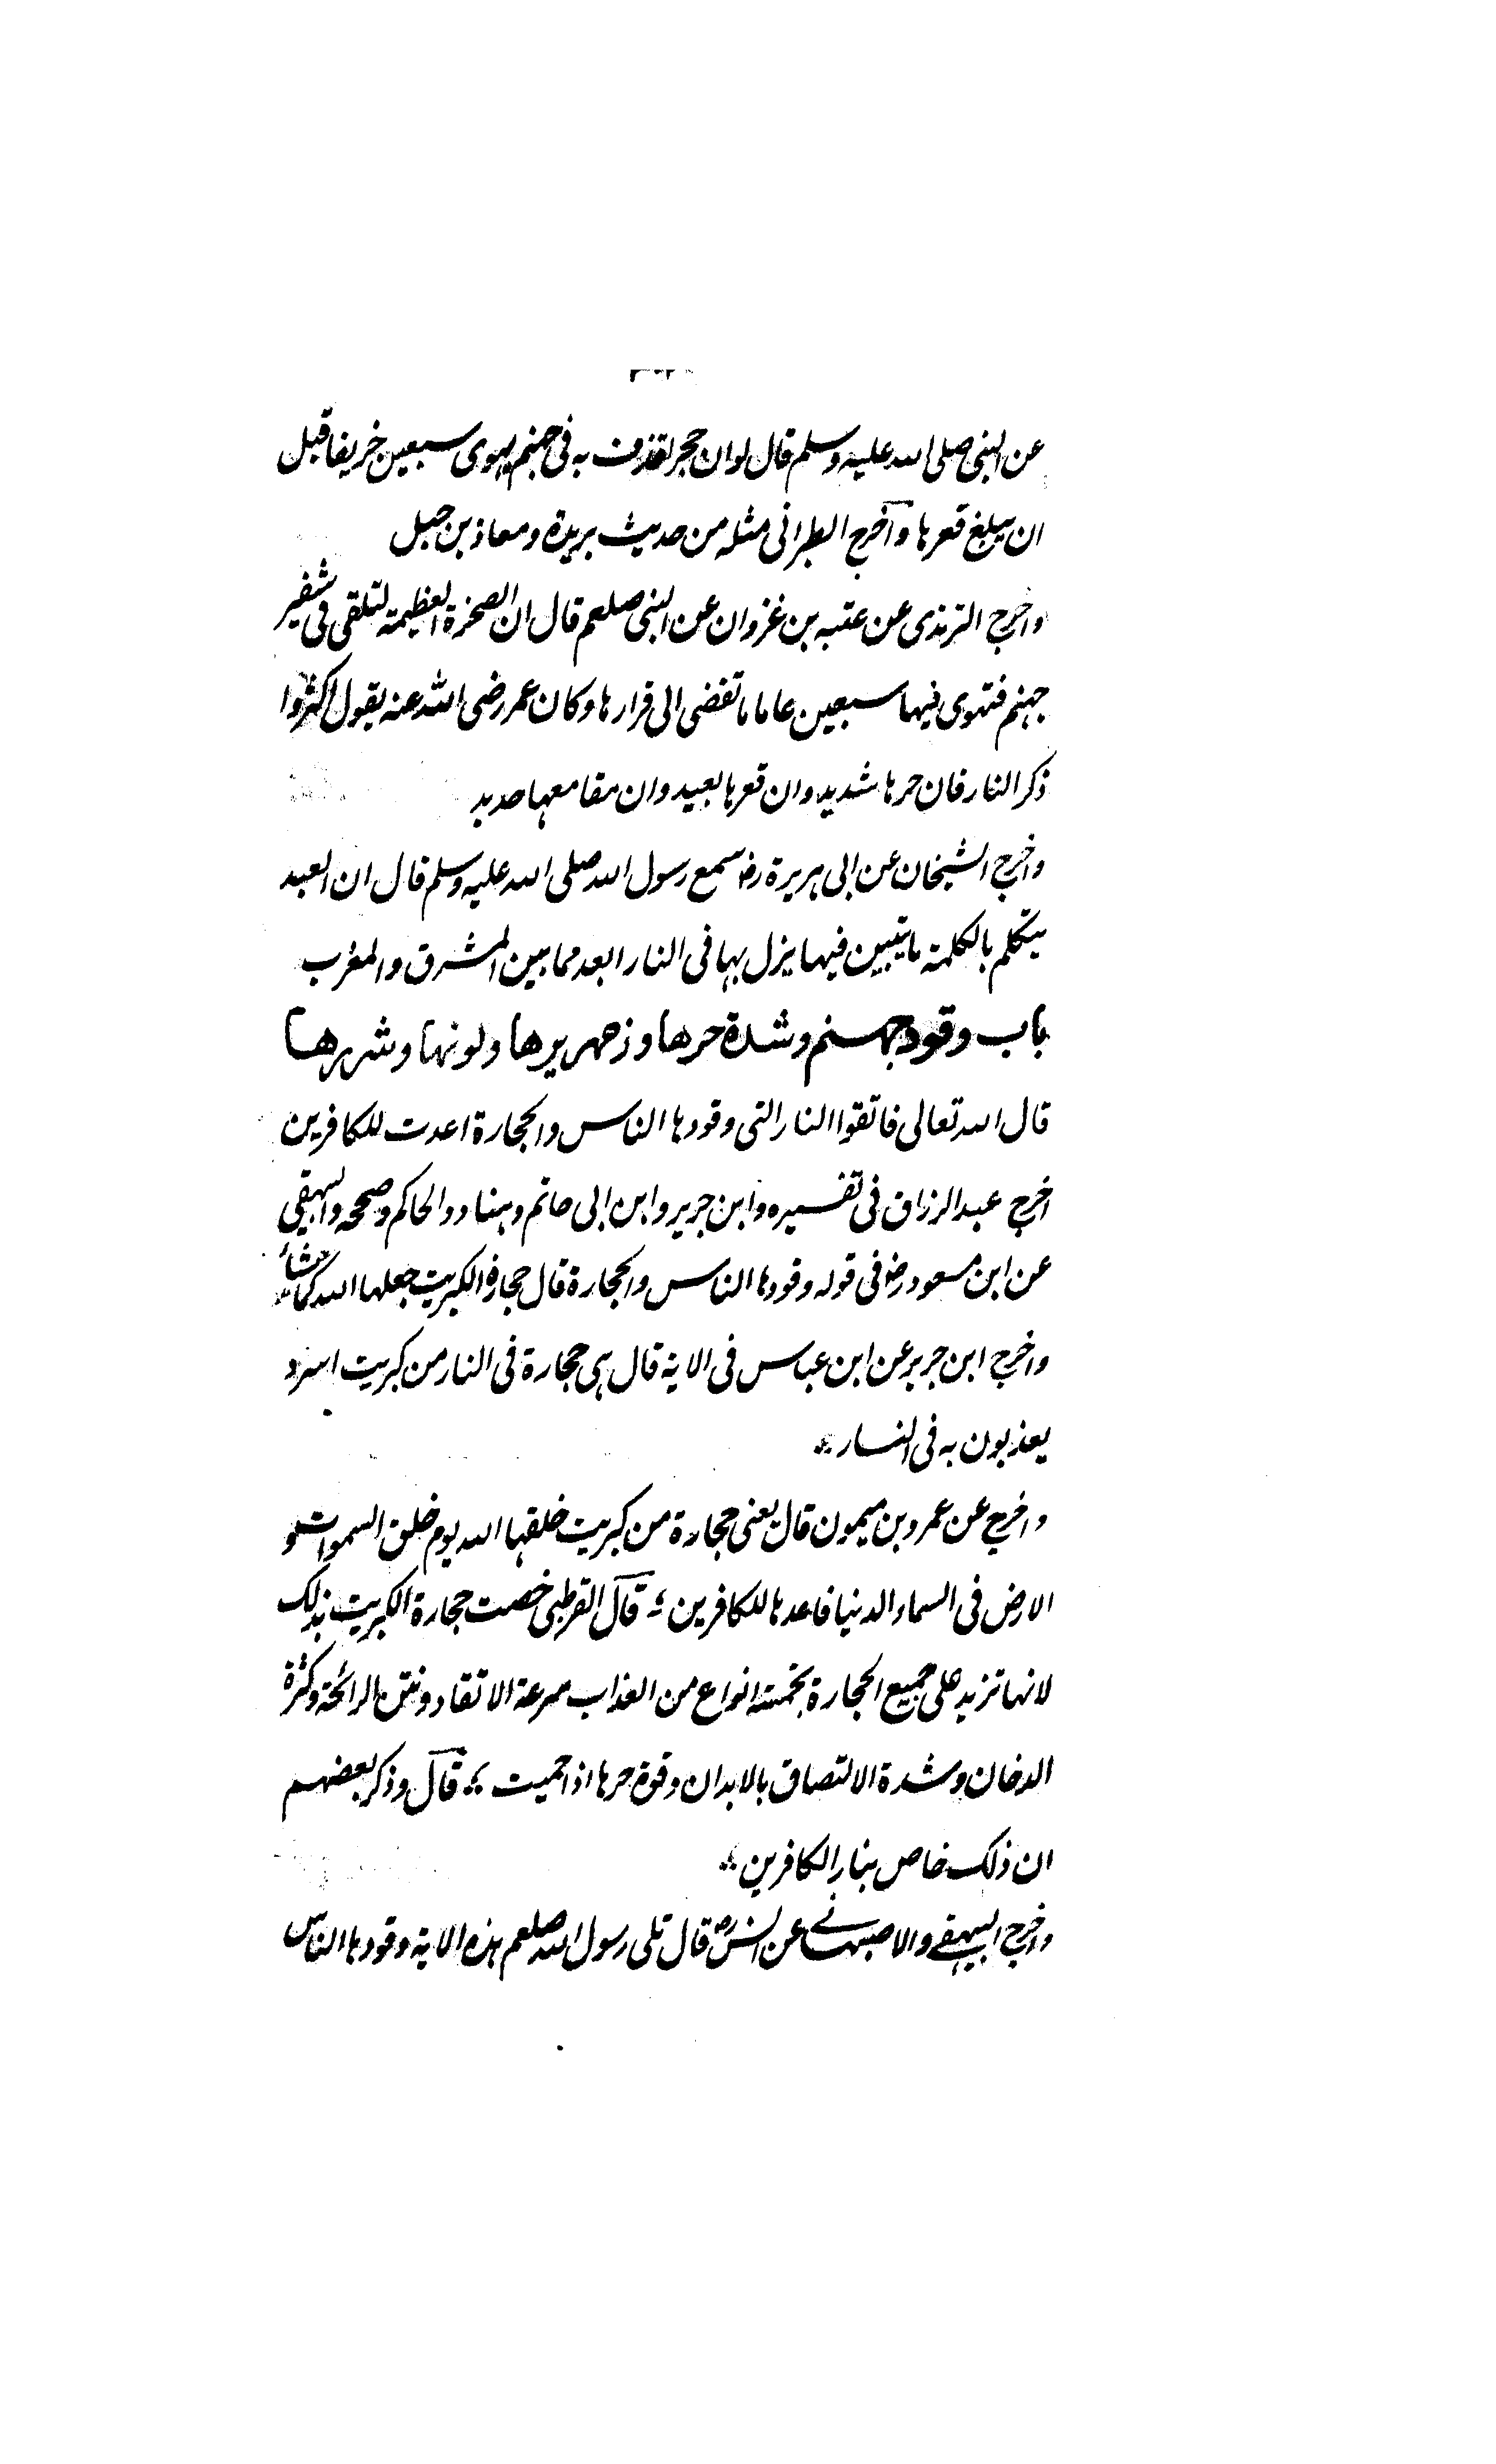 عن النبی صلی الله علیه وسلم قال لوان حجر القذف به فی جهنم یهوی سبعین خریفا قبل
ان یبلغ قعرها وآخرج الطبرانی مثله من حدیث بریدة ومعاذ بن جبل
واخرج الترمذی عن عتبه بن غزوان عن النبی صلعم قال ان الصخرة العظیمة لتلقی فی شفیر
جهنم فتهوی فیها سبعین عاما ما تفضی الی قرارها وکان عمر رضی الله عنه یقول اکثروا
ذکر النار فان حرها شدید وان قعرها بعید وان مقامعها حدید
واخرج الشیخان عن ابی هریرة رض سمع رسول الله صلی الله علیه وسلم قال ان العبد
یتکلم بالکلمة ما یتبین فیها یزل بها فی النار ابعد مما بین المشرق والمغرب
باب وقود جهنم وشدة حرها وزمهریرها ولونها وشررها
قال الله تعالی فاتقوا النار التی وقودها الناس والحجارة اعدت للکافرین
اخرج عبد الرزاق فی تفسیره وابن جریر وابن ابی حاتم وهناد والحاکم وصححه والبیهقی
عن ابن مسعود رض فی قوله وقودها الناس والحجارة قال حجارة الکبریت جعلها الله کما شاء
واخرج ابن جریر عن ابن عباس فی الایة قال هی حجارة فی النار من کبریت اسود
یعذبون به فی النار
واخرج عن عمرو بن میمون قال یعنی حجارة من کبریت خلقها الله یوم خلق السموات و
الارض فی السماء الدنیا فاعدها للکافرین ؛ قال القرطبی خصت حجارة الکبریت بذلک
لانها تزید علی جمیع الحجارة بخمسة انواع من العذاب سرعة الاتقاد ونتن الرائحة وکثرة
الدخان وشدة الالتصاق بالابدان وقوة حرها اذا حمیت ؛ قال وذکر بعضهم
ان ذلک خاص بنار الکافرین
واخرج البیهقی والاصبهانی عن انس رض قال تلی رسول الله صلعم هذه الایة وقودها الناس